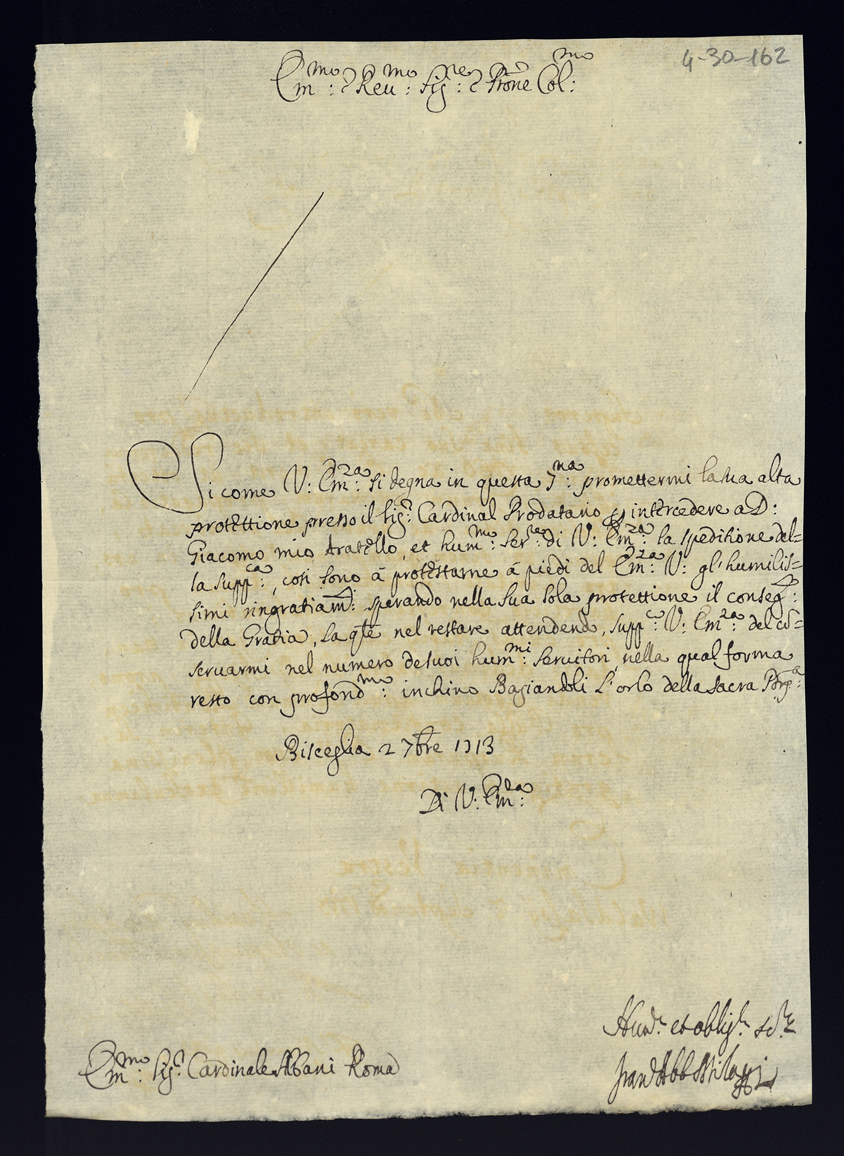 4-30-162
Em:mo e Reu:mo Sig:re e Prone Col:mo
Si come V: Em:za si degna in questa 7:na promettermi la sua alta
protettione presso il Sig:r Cardinal Prodatario p intercedere a D:
Giacomo mio fratello, et hum:mo ser:re di V: Em:za la speditione del=
la supp:ca, così sono à protestarne à piedi del Em:za V: gl'humilis=
simi ringratiam:ti sperando nella sua sola protettione il conseg:
della Gratia, la qle nel restare attendend, supp:co V: Em:za del co=
seruarmi nel numero de suoi hum:mi seruitori, nella qual forma
resto con profond:mo inchino Bagiandoli l'orlo della sacra Porp:a
Bisceglia 2 7bre 1713
Di V: Em:za
Hum: et oblig:
Em:mo Sig:r Cardinale Albani Roma